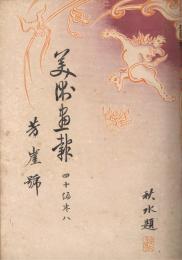 美術画報
四十編巻八
芳崖號
秋水題